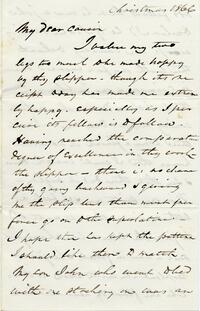 Christmas 1866
My dear Cousin
I value my two
legs too much to be made happy
by thy slipper - though its re
ceipt today has made me extrem
ely happy. especially as I per
ceive its fellow is to follow.
Having reached the comparative
degree of Excellence in thy work
the slipper - there is no chance
of thy going backward & giving
me the slip less than must per
force go on to the superlative.
I hope thee has kept the pattern
I should like them to match
My son John who went to bed
with one stocking on was an